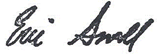 Eric Small